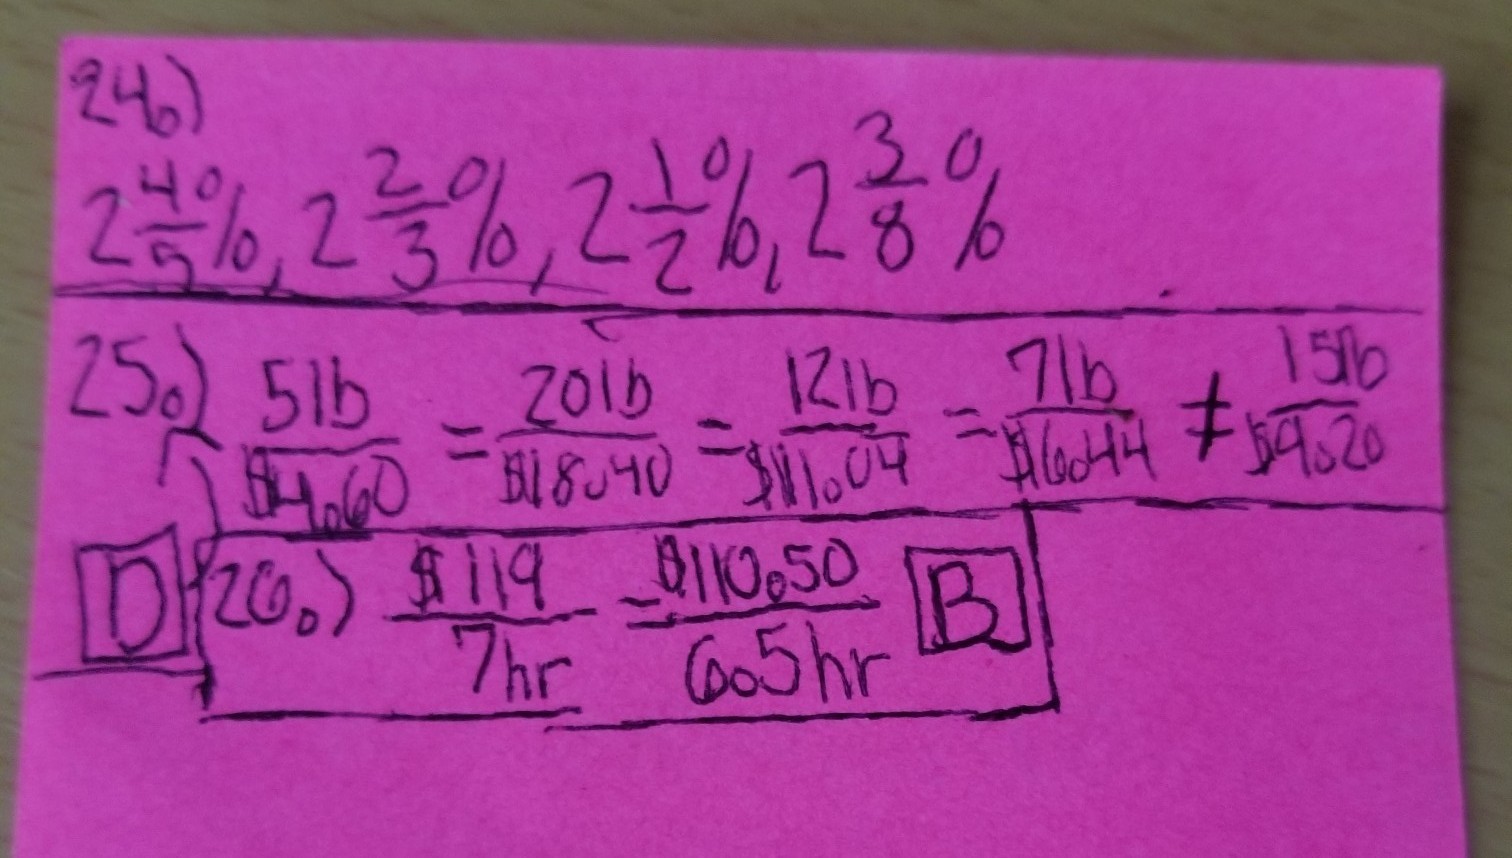 24.)
2 4/5 %, 2 2/3 %, 2 1/2 %, 2 3/8 %
25.) 5lb/$4.60 = 20lb/$18.40 = 12lb/$11.04 = 7lb/$6.44 ≠ 15lb/$9.20
D
26.) $119/7hr = $110.50/6.5hr B